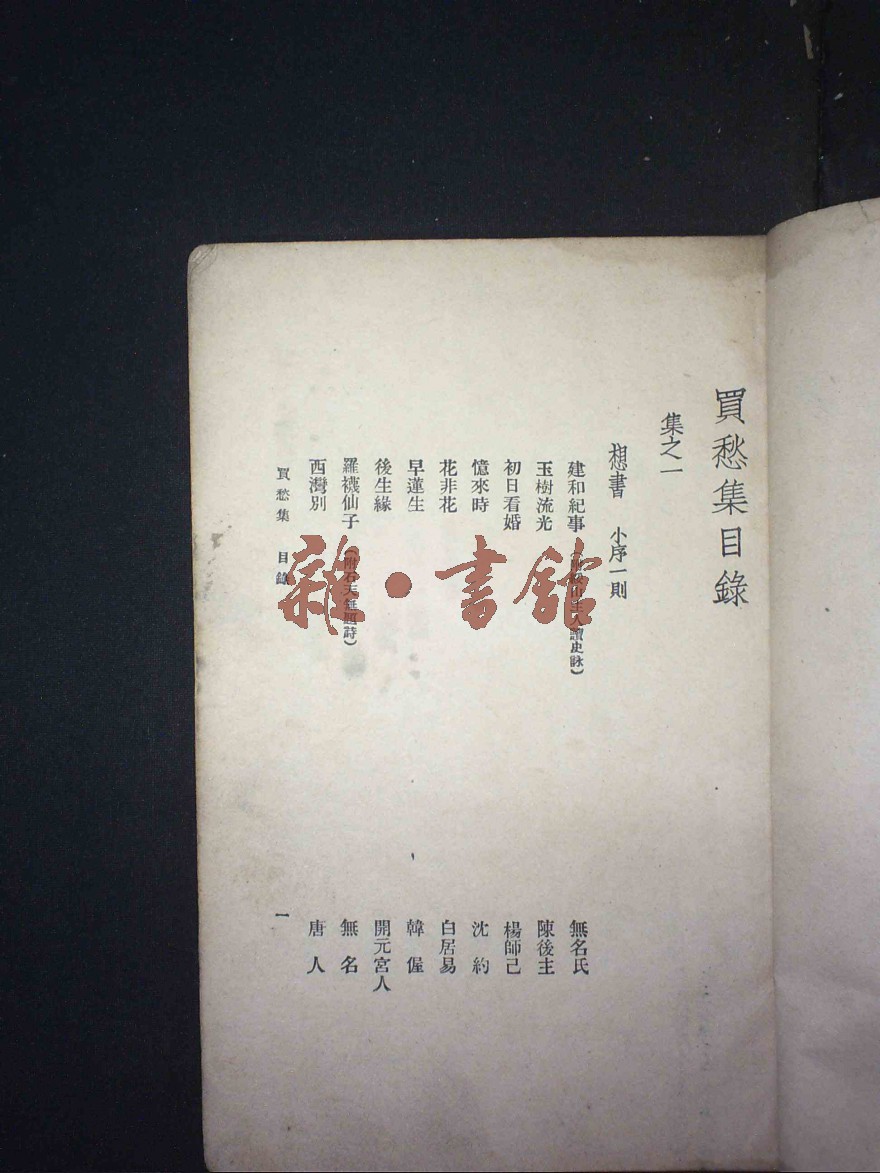 買愁集目錄
集之一
想書 小序一則
建和紀事 山主人讀史詠) 無名氏
玉樹流光 陳後主
初日看婚 楊師己
憶來時 沈約
花非花 白居易
早蓮生 韓偓
後生緣 開元宮人
羅襪仙子 (附石天無題詩) 無名
西灣別 唐人
買愁集 目錄 一
雜·書館